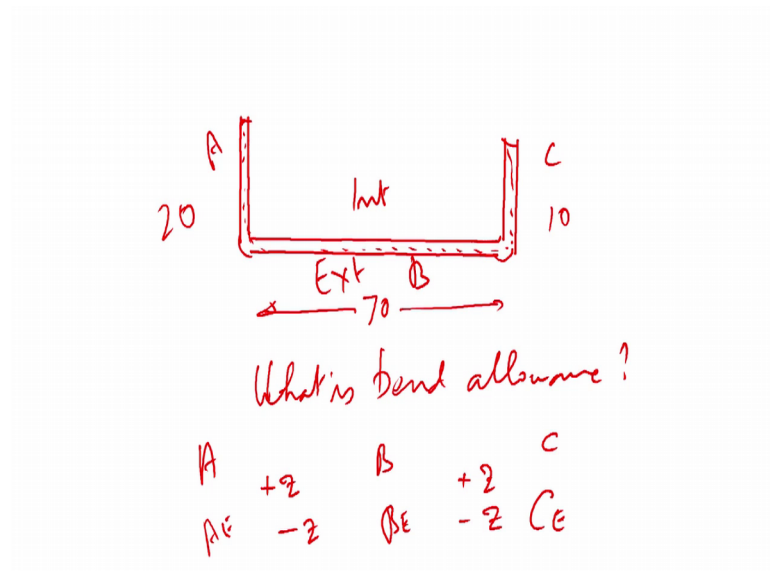 A C
Int
20 10
Ext B
70
What is bend allowance?
A +z B +z C
AE -z BE -z CE